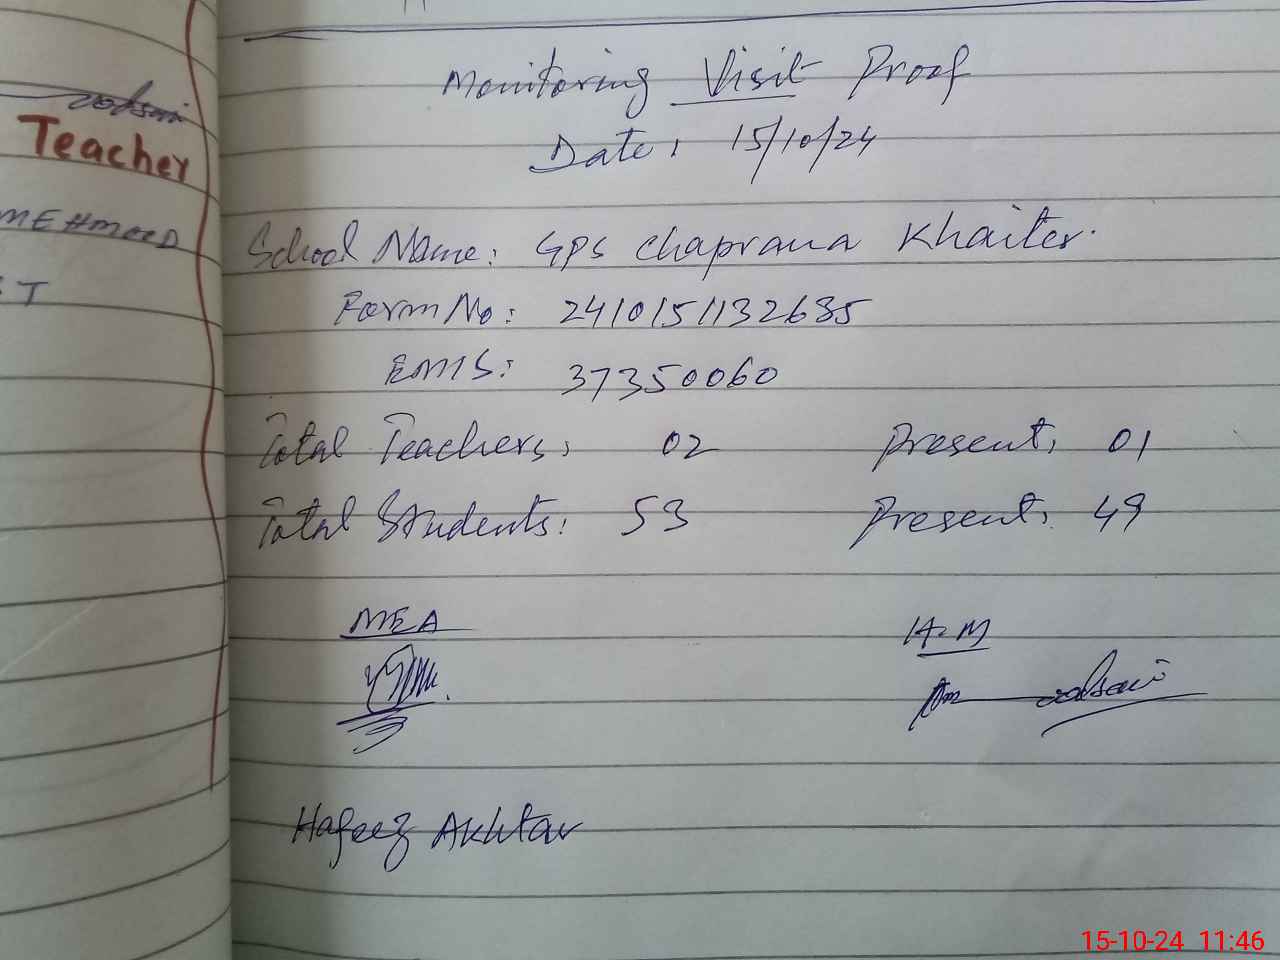 Teacher
MEHMOOD
ST
Monitoring Visit Proof
Date: 15/10/24
School Name: GPS Chaprana Khaiter.
Form No: 2410151132685
EMIS: 37350060
Total Teachers: 02 Present: 01
Total Students: 53 Present: 49
MEA H.M
Hafeez Akhtar
15-10-24 11:46